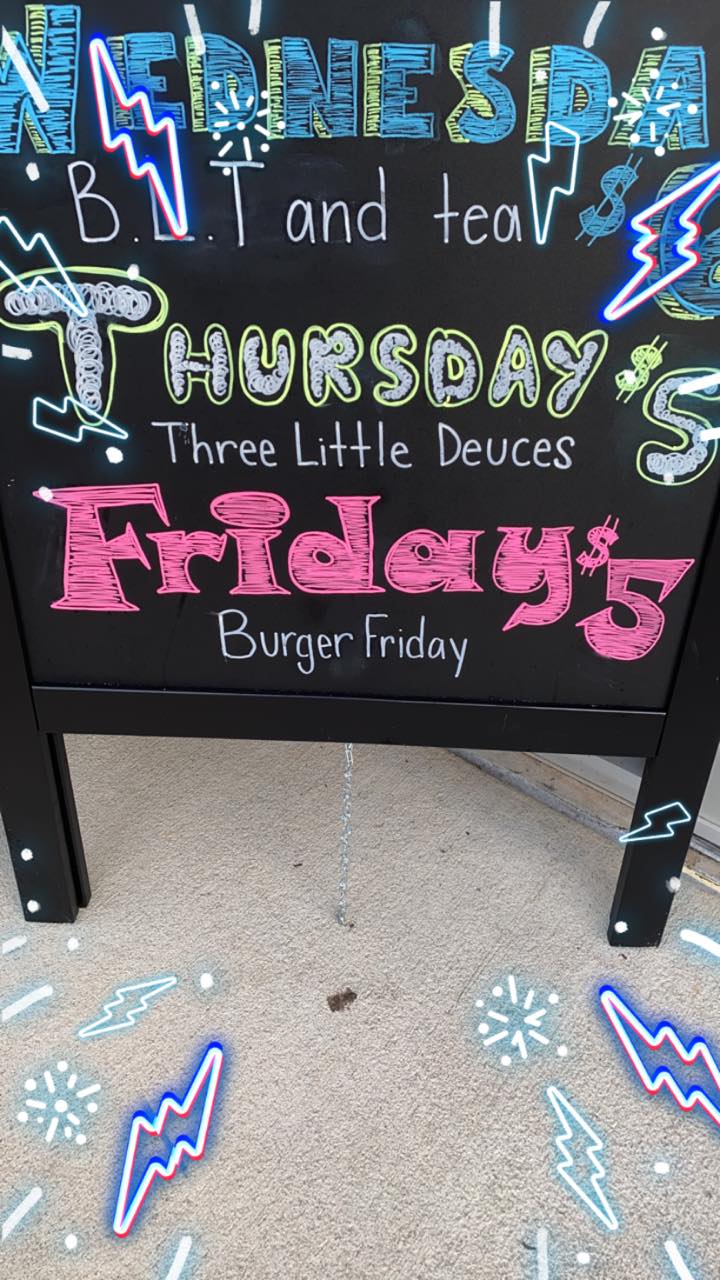 WEDNESDA
B.L.T and tea $6
THURSDAY $5
Three Little Deuces
Friday $5
Burger Friday